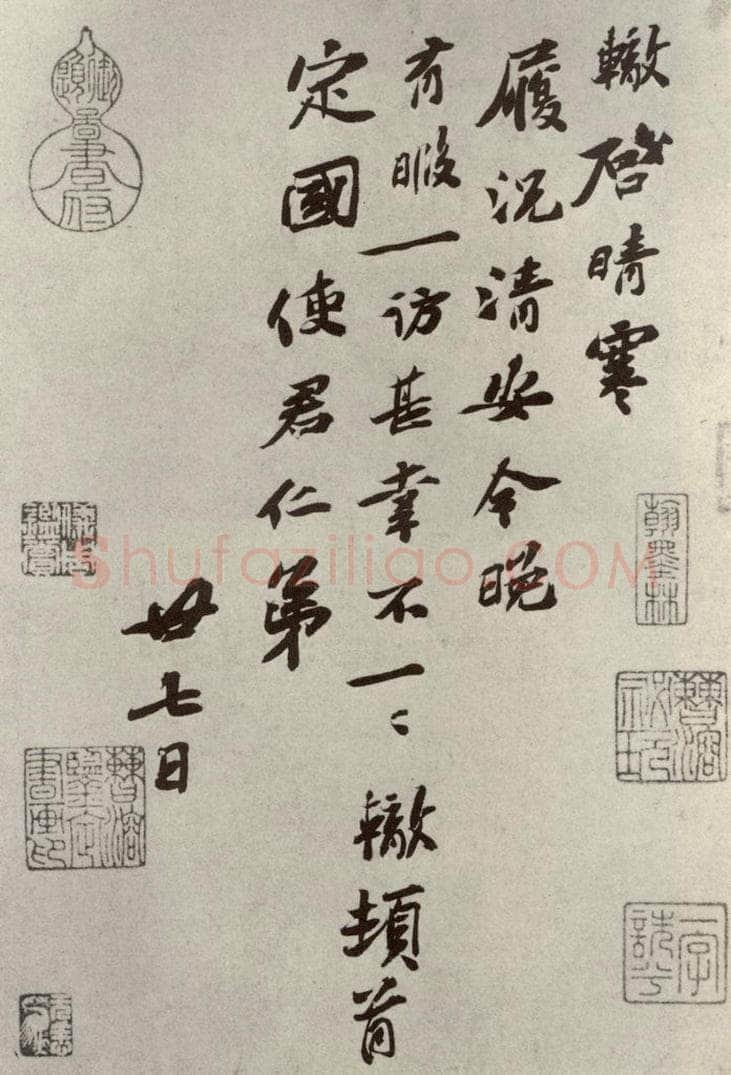 轍啓晴寒
履況清安今晚
有暇一訪甚幸不一〻轍頓首
定國使君仁弟
廿七日
Shufaziliao.COM
翰墨林
一字詩父